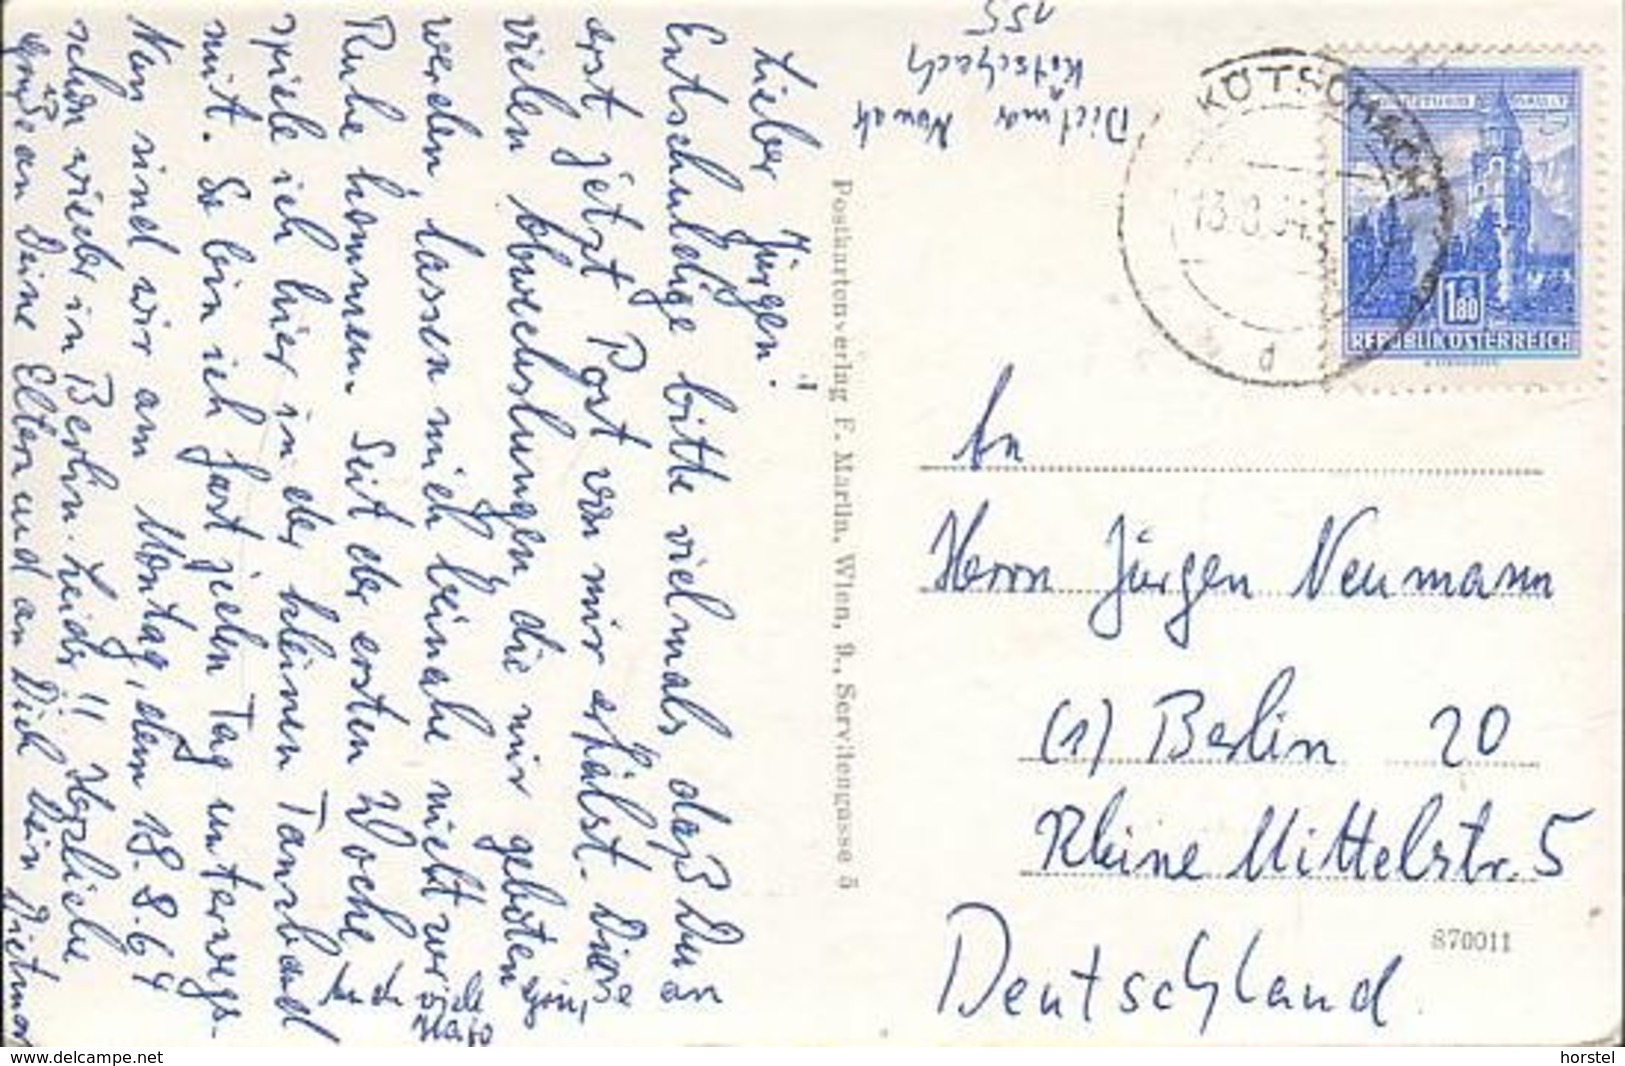 Dietmar Nowak
Kötschach
155
KÖTSCHACH
13.8.64
d
1.80
REPUBLIK ÖSTERREICH
Lieber Jürgen!
Entschuldige bitte vielmals, daß Du an
erst jetzt Post von mir erhälst. Diese
vielen Abwechslungen, die mir geboten
werden, lassen mich beinahe nicht zur
Ruhe kommen. Seit der ersten Woche
spiele ich hier in der kleinen Tanzband
mit. So bin ich fast jeden Tag unterwegs.
Nun sind wir am Montag, den 18.8.64
schon wieder in Berlin. Leider!! Herzliche
Grüße an Deine Eltern und an Dich Dein Dietmar
Postkartenverlag F. Martin, Wien, 9., Servitengasse 5
An
Herrn Jürgen Neumann
(1) Berlin 20
Kleine Mittelstr. 5
Deutschland
870011
www.delcampe.net
horstel